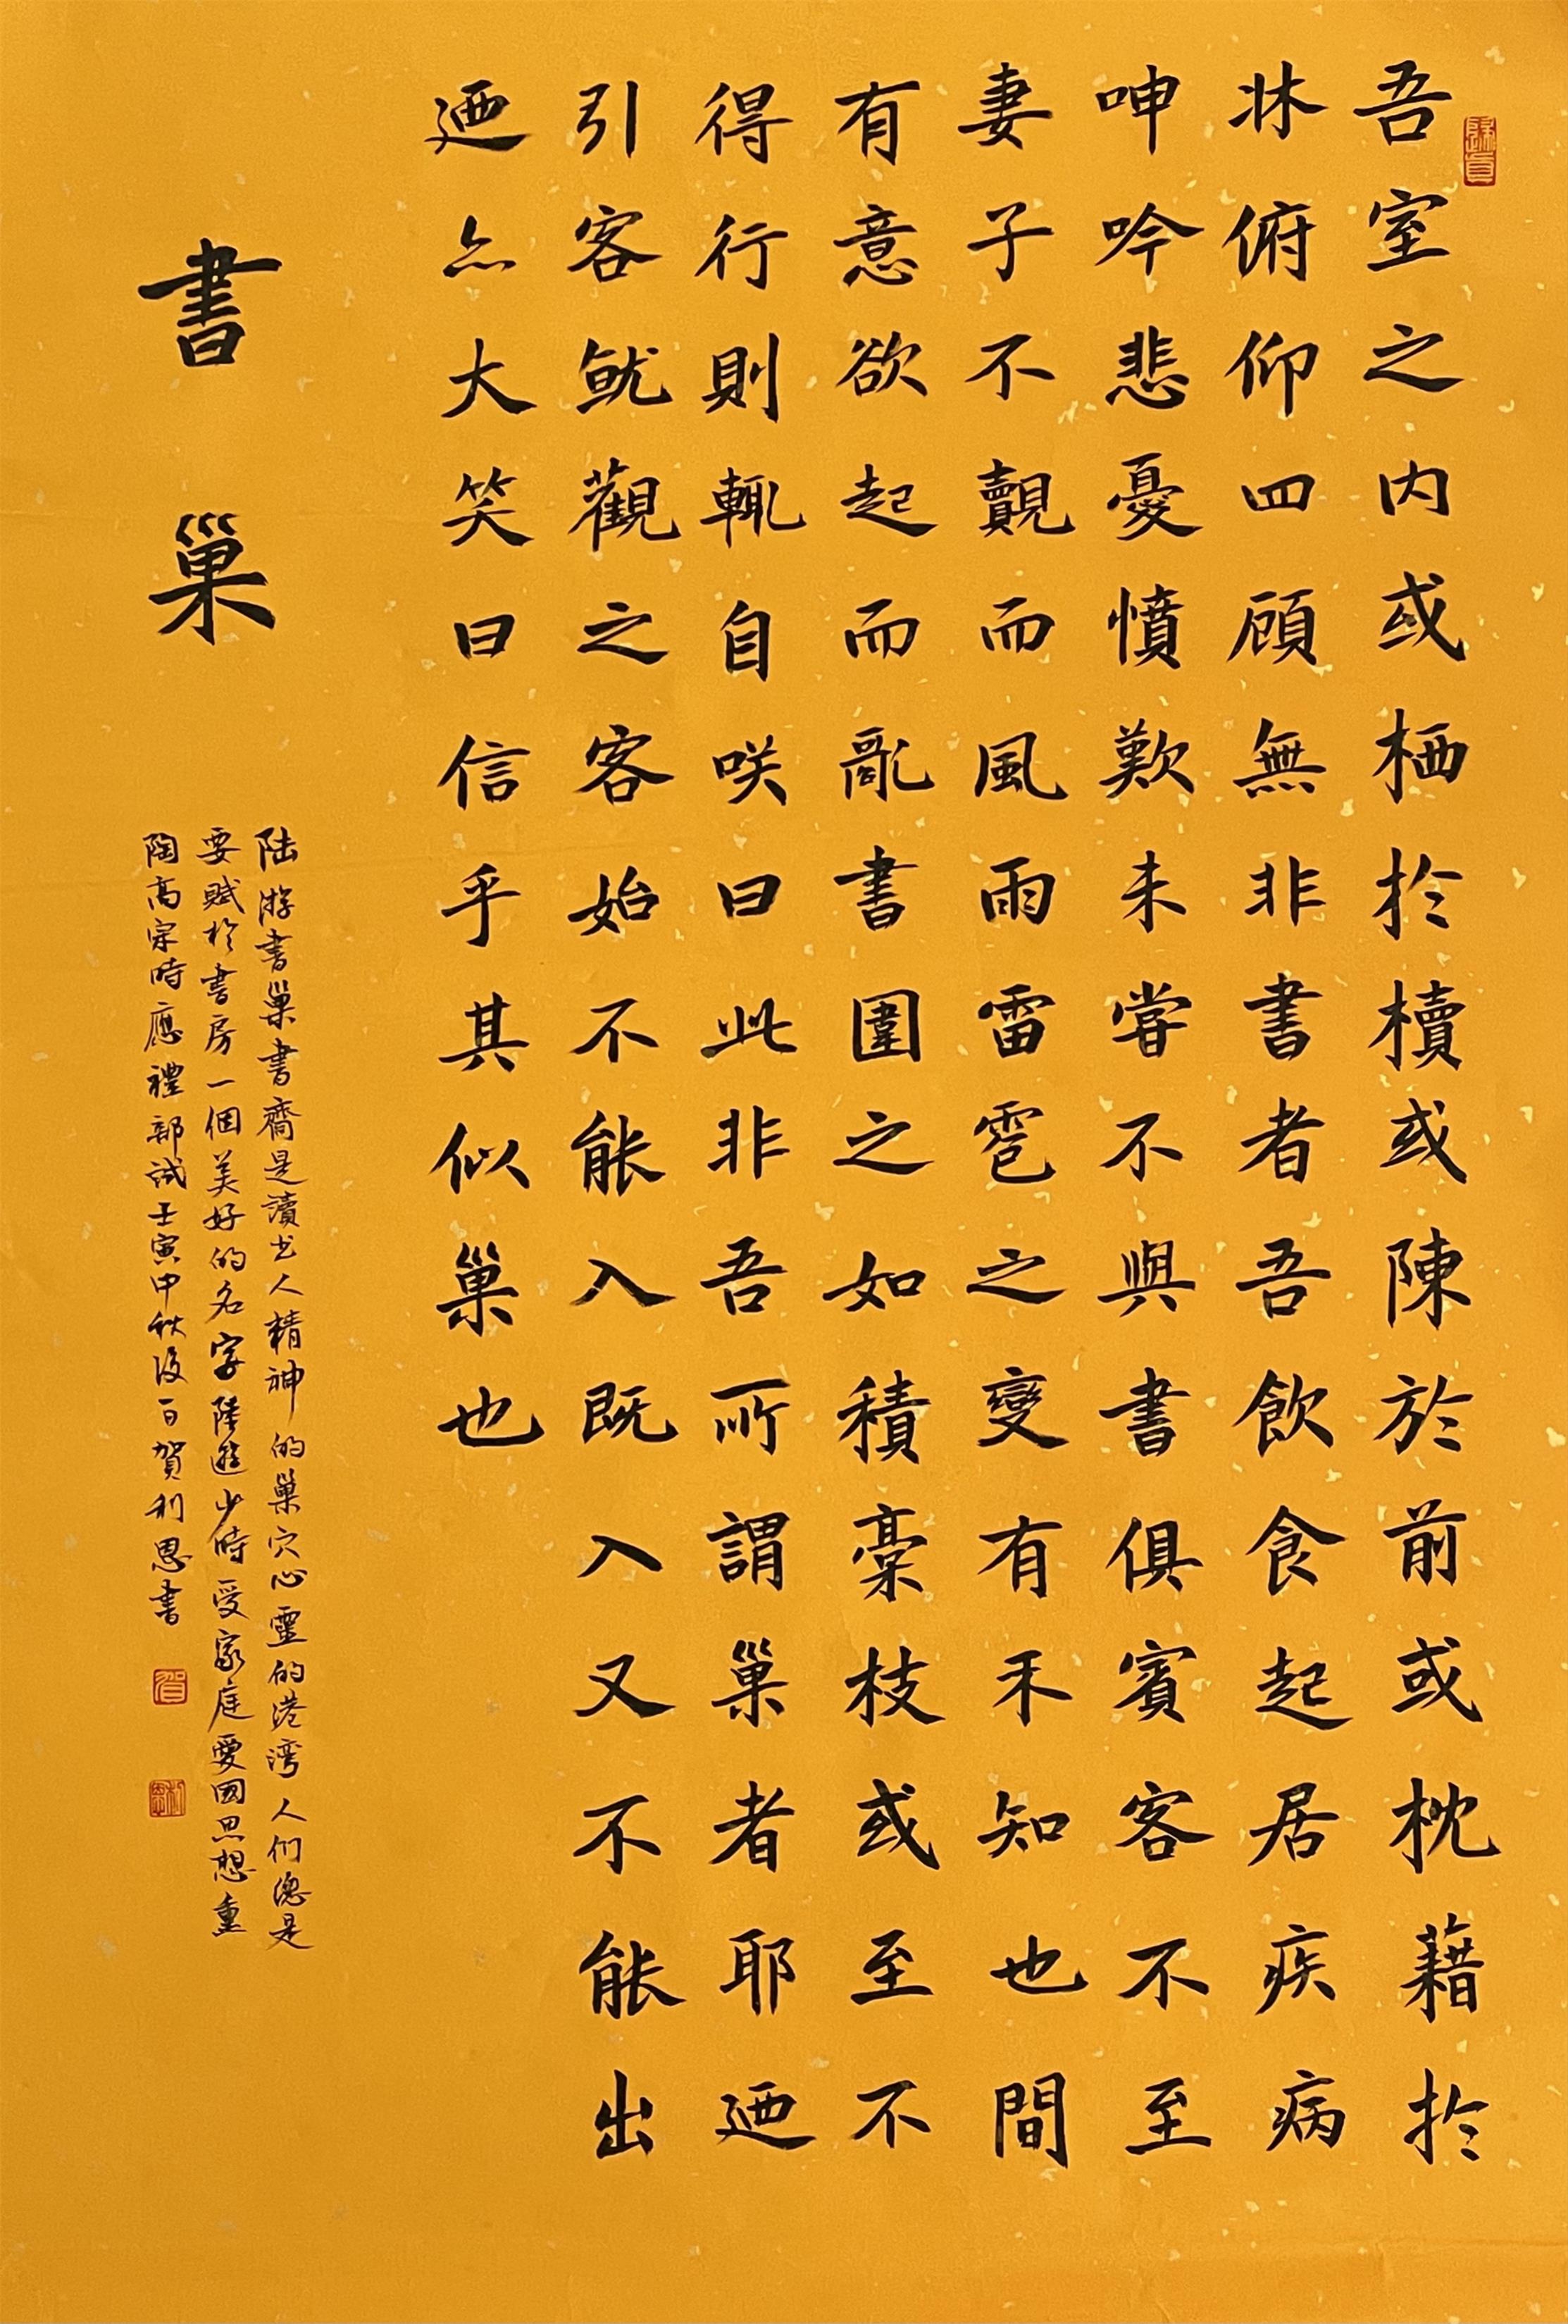 吾室之内或栖於櫝或陳於前或枕藉於
牀俯仰四顧無非書者吾飲食起居疾病
呻吟悲憂憤歎未嘗不與書俱賓客不至
妻子不覿而風雨雷雹之變有不知也間
有意欲起而亂書圍之如積槀枝或至不
得行則輒自咲曰此非吾所謂巢者耶迺
引客就觀之客始不能入既入又不能出
迺亦大笑曰信乎其似巢也
書巢
陆游書巢書齋是讀书人精神的巢穴心靈的港湾人们總是
要賦於書房一個美好的名字陸遊少時受家庭愛國思想熏
陶高宗時應禮部試壬寅中秋後一日賀利思書